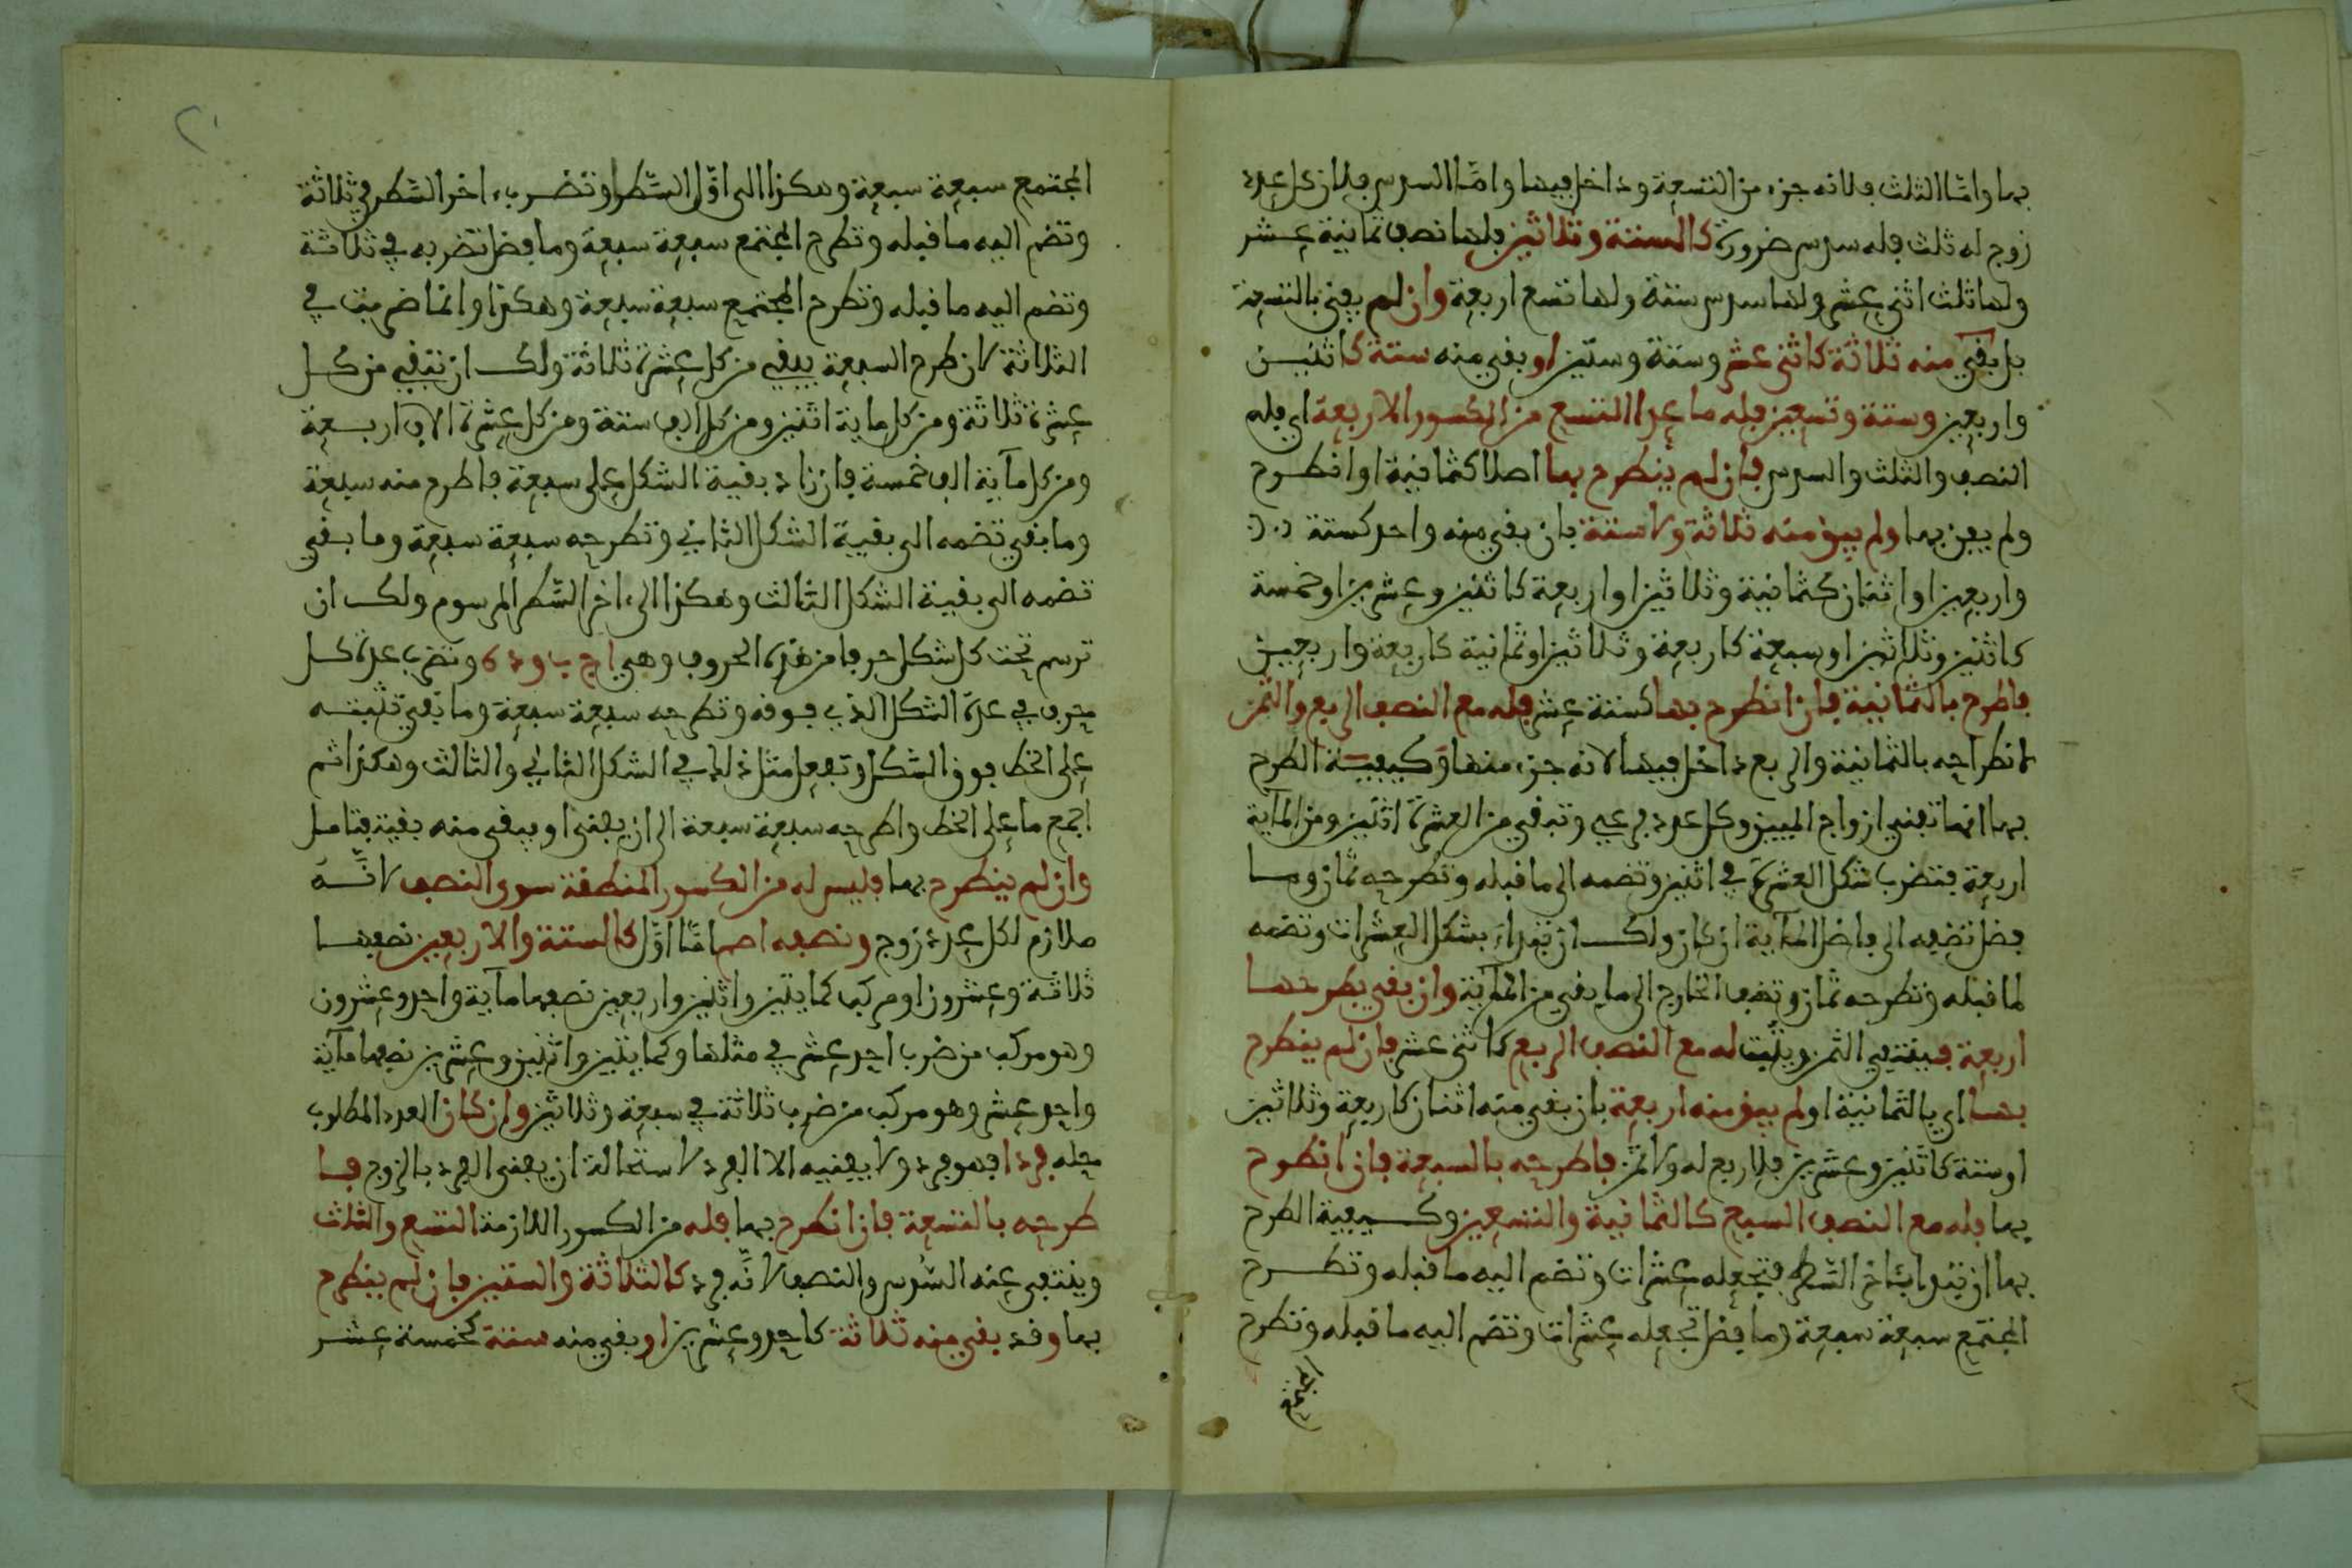 بها واما الثلث فلانه جزء من التسعة وداخل فيها واما السدس فلان كل عدد
زوج له ثلث فله سدس ضرورة كالستة وثلاثين فلها نصف ثمانية عشر
ولها ثلث اثنى عشر ولها سدس ستة ولها تسع اربعة وان لم يفن بالتسعة
بل بقي منه ثلاثة كاثنى عشر وستة وستين او بقي منه ستة كاثنين
واربعين وستة وتسعين فله ما عدا التسع من الكسور الاربعة اي فله
النصف والثلث والسدس فان لم ينطرح بها اصلا كثمانية او انطرح
ولم يفن بها ولم يبق منه ثلاثة ولا ستة بان بقي منه واحد كستة
واربعين او اثنان كثمانية وثلاثين او اربعة كاثنين وعشرين او خمسة
كاثنين وثلاثين او سبعة كاربعة وثلاثين او ثمانية كاربعة واربعين
فاطرح بالثمانية فان انطرح بها كستة عشر فله مع النصف الربع والثمن
لانطراحه بالثمانية والربع داخل فيها لانه جزء منها وكيفية الطرح
بها انها تفني ازواج الميين وكل عدد فرعي وتبقي من العشرة اثنين ومن المآية
اربعة فتضرب شكل العشرة في اثنين وتضمه الى ما قبله وتطرحه ثمان وما
فضل تضيفه الى فاضل المآية ان كان ولك ان تبدا بشكل العشرات وتضمه
لما قبله وتطرحه ثمان وتضف الخارج الى ما بقي من المآية وان بقي بطرحها
اربعة فينتفي الثمن ويثبت له مع النصف الربع كاثنى عشر فان لم ينطرح
بها اي بالثمانية او لم يبق منه اربعة بان بقي منه اثنان كاربعة وثلاثين
او ستة كاثنين وعشرين فلا ربع له ولا ثمن فاطرحه بالسبعة فان انطرح
بها فله مع النصف السبع كالثمانية والتسعين وكيفية الطرح
بها ان تبدا بآخر السطر فتجعله عشرات وتضم اليه ما قبله وتطرح
المجتمع سبعة سبعة وما فضل تجعله عشرات وتضم اليه ما قبله وتطرح
المجتمع سبعة سبعة وهكذا الى اول السطر او تضرب اخر السطر في ثلاثة
وتضم اليه ما قبله وتطرح المجتمع سبعة سبعة وما فضل تضربه في ثلاثة
وتضم اليه ما قبله وتطرح المجتمع سبعة سبعة وهكذا وانما ضربت في
الثلاثة لان طرح السبعة يبقي من كل عشرة ثلاثة ولك ان تبقي من كل
عشرة ثلاثة ومن كل ماية اثنين ومن كل الف ستة ومن كل عشرة الاف اربعة
ومن كل مآية الف خمسة فان زاد بقية الشكل على سبعة فاطرح منه سبعة
وما بقي تضمه الى بقية الشكل الثاني وتطرحه سبعة سبعة وما بقي
تضمه الى بقية الشكل الثالث وهكذا الى اخر السطر المرسوم ولك ان
ترسم تحت كل شكل حرفا من هذه الحروف وهي ا ج ب و د ه وتضرب عدة كل
حرف في عدة الشكل الذي فوقه وتطرحه سبعة سبعة وما بقي تثبته
على الخط فوق الشكل وتفعل مثل ذلك في الشكل الثاني والثالث وهكذا ثم
اجمع ما على الخط واطرحه سبعة سبعة الى ان يفنى او يبقى منه بقية فتامل
وان لم ينطرح بها فليس له من الكسور المنطقة سوى النصف لانه
ملازم لكل عدد زوج ونصفه اصم اما اول كالستة والاربعين نصفها
ثلاثة وعشرون او مركب كمايتين واثنين واربعين نصفها مآية واحد وعشرون
وهو مركب من ضرب احد عشر في مثلها وكمايتين واثنين وعشرين نصفها مآية
واحد عشر وهو مركب من ضرب ثلاثة في سبعة وثلاثين وان كان العدد المطلوب
حله فردا فهو فرد ولا يفنيه الا الفرد لاستحالة ان يفنى الفرد بالزوج فا
طرحه بالتسعة فان انطرح بها فله من الكسور اللازمة التسع والثلث
وينتفي عنه السدس والنصف لانه فرد كالثلاثة والستين فان لم ينطرح
بها وقد بقي منه ثلاثة كاحد وعشرين او بقي منه ستة كخمسة عشر